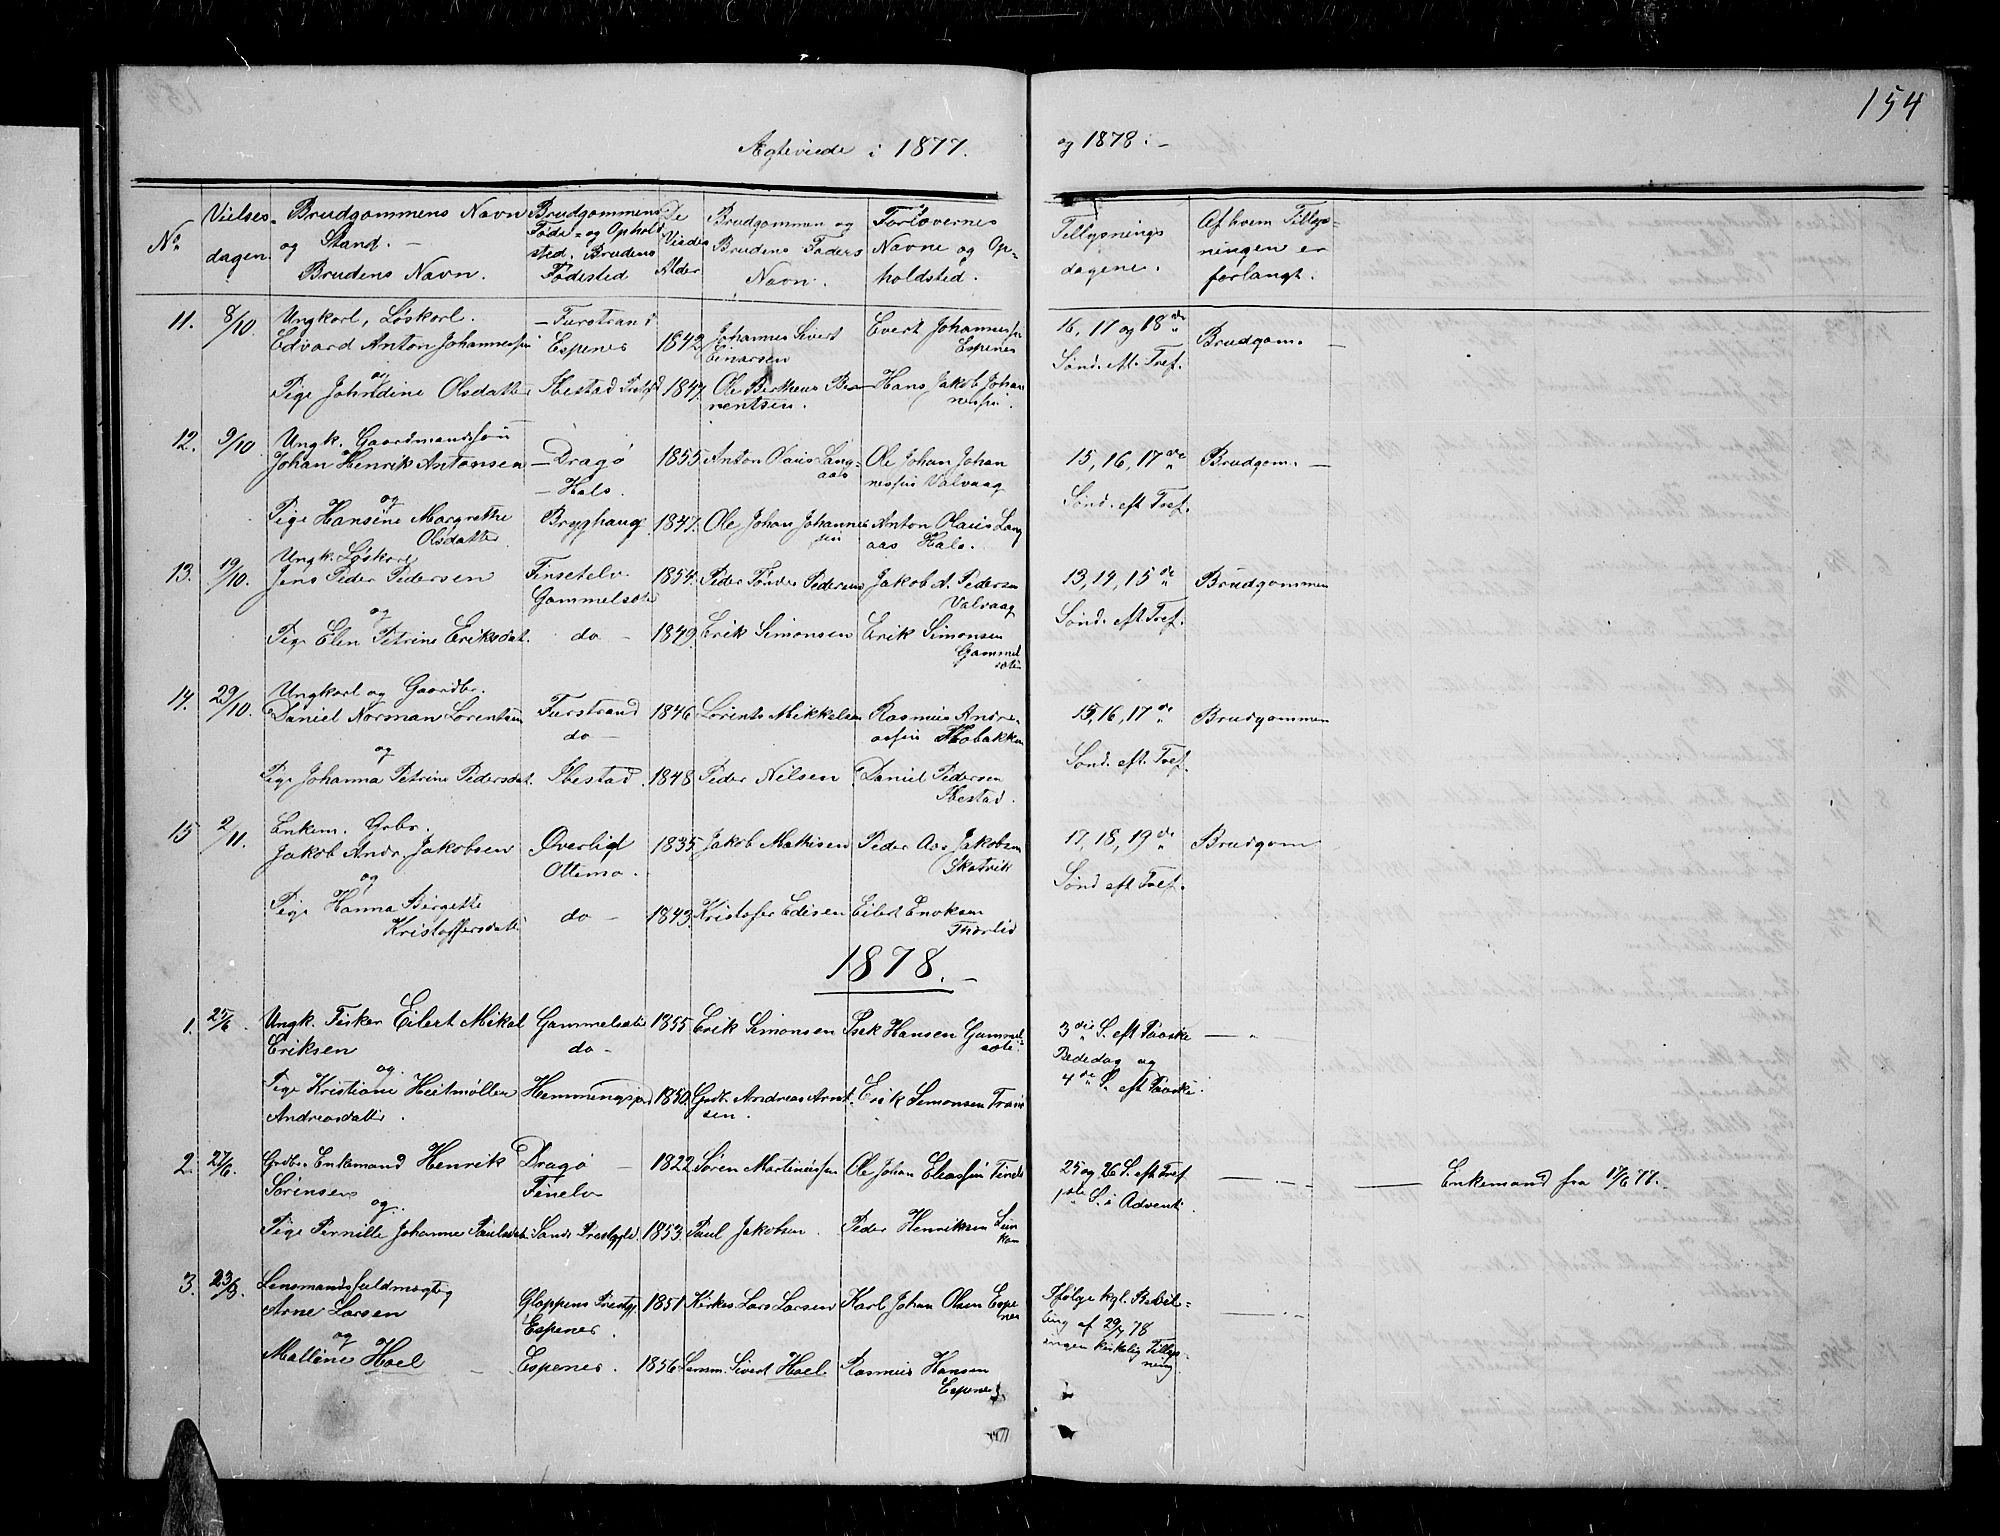 154
Ægteviede i 1877. og 1878.
No Vielses-dagen. Brudgommens Navn og Stand. Brudens Navn. Brudgommens Føde- og Ophold sted. Brudens Fødested De Viedes Alder Brudgommen og Brudens Faders Navn. Forlovernes Navne og Op-holdsted. Tillysnings dagene. Af hvem Tillys-ningen er forlangt.
11. 8/10. Ungkarl, Løskarl.
Edvard Anton Johannessen Furstrand Espenes 1842 Johannes Sivert Enarsen Evert Johannessen Espenes 16, 17 og 18de Sønd. eft. Tref. Brudgom.
og
Pige Johndine Olsdatter Ibestad 1847. Ole Bertheus Hans Jakob Johannessen.
12. 9/10. Ungk. Gaardmandssøn
Johan Henrik Antonsen Dragø Hals. 1855. Anton Olaus Langaas Ole Johan Johannessen Valvaag 15, 16, 17de Sønd. eft Tref. Brudgom.
og
Pige Hansine Margrethe Olsdatter Brygghaug 1847. Ole Johan Johannessen Anton Olaus Langaas Hals.
13. 19/10. Ungk. Løskarl
Jens Peder Pedersen Finsetelv Gammelsæter 1854. Peder Tønder Pedersen Jakob A. Pedersen Valvaag 13, 14, 15de Sønd. eft Tref. Brudgommen
og
Pige Elen Petrine Eriksdat. do 1849. Erik Simonsen Erik Simonsen Gammelsæter
14. 29/10. Ungkarl og Gaardbr.
Daniel Norman Lorentsen Furstrand do 1846 Lorents Mikkelsen Rasmus Andreassen Mobakken 15, 16, 17de Sønd. eft. Tref. Brudgommen
og
Pige Johanna Petrine Pedersdat. Ibestad. 1848. Peder Nilsen Daniel Pedersen Ibestad.
15 2/11. Enkem. Grbr.
Jakob Andr. Jakobsen Øverlid Ottemo. 1835 Jakob Mathisen Peder Aas Jakobsen Skatvik 17, 18, 19de Sønd eft Tref. Brudgom
og
Pige Hanna Birgette Kristoffersdatter do 1843. Kristofer Edisen Eilert Enoksen Thorlid
1878.
1. 25/6. Ungk. Fisker Eilert Mikal Eriksen Gammelsæter do 1855 Erik Simonsen Isak Hansen Gammelsæter. 3die S. eft Paaske Bededag og 4de S. eft Paaske.
og
Pige Kristiane Heitmøller Andreasdatter. Hemmingsjord 1850. Grdb. Andreas Arntsen. Erik Simonsen
2. 27/6. Grdbr. Enkemand Henrik Sørensen Dragø Finelv 1822 Søren Martinussen Ole Johan Eliassen 25 og 26 S. eft Tref 1ste S. i Advent. Enkemand fra 17/6 77.
og
Pige Pernille Johanne Paulsdat. Sands Prestgjeld. 1853. Paul Jakobsen. Peder Henriksen
3. 23/8. Lensmandsfuldmægtig
Arne Larsen Gloppens Prestgj. Espenes. 1851 Kirkes. Lars Larsen Karl Johan Olsen Espenes Ifølge kgl. Bevilling af 29/7 78 ingen kirkelig Tillysning
og
Malline Hoel Espenes. 1856 Lensm. Sivert Hoel. Rasmus Hansen Espenes.